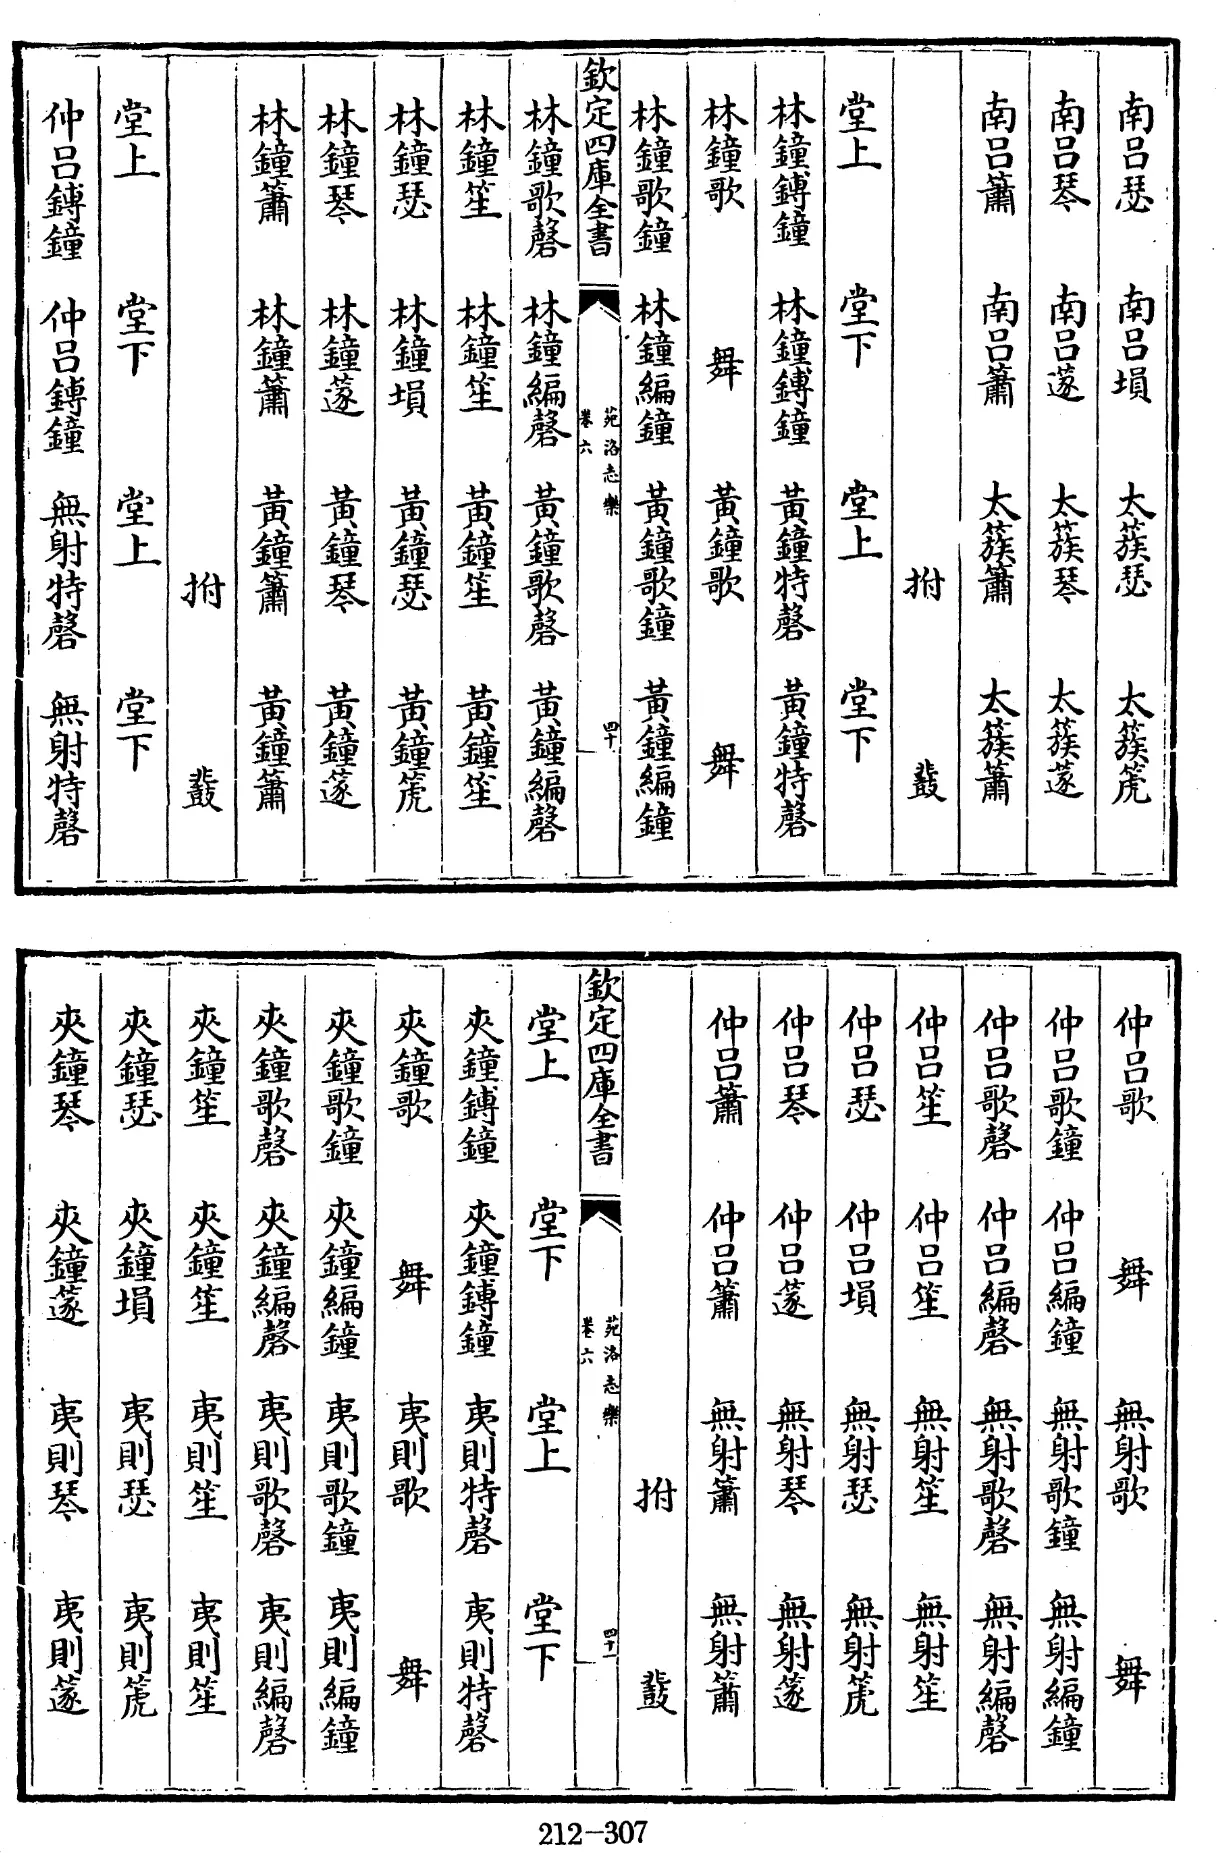 南呂瑟 南呂塤 太簇瑟 太簇篪
南呂琴 南呂篴 太簇琴 太簇篴
南呂簫 南呂簫 太簇簫 太簇簫
拊 鼗
堂上 堂下 堂上 堂下
林鐘鎛鐘 林鐘鎛鐘 黃鐘特磬 黃鐘特磬
林鐘歌 舞 黃鐘歌 舞
林鐘歌鐘 林鐘編鐘 黃鐘歌鐘 黃鐘編鐘
欽定四庫全書
苑洛志樂
卷六
四十
林鐘歌磬 林鐘編磬 黃鐘歌磬 黃鐘編磬
林鐘笙 林鐘笙 黃鐘笙 黃鐘笙
林鐘瑟 林鐘塤 黃鐘瑟 黃鐘篪
林鐘琴 林鐘篴 黃鐘琴 黃鐘篴
林鐘簫 林鐘簫 黃鐘簫 黃鐘簫
拊 鼗
堂上 堂下 堂上 堂下
仲呂鎛鐘 仲呂鎛鐘 無射特磬 無射特磬
仲呂歌 舞 無射歌 舞
仲呂歌鐘 仲呂編鐘 無射歌鐘 無射編鐘
仲呂歌磬 仲呂編磬 無射歌磬 無射編磬
仲呂笙 仲呂笙 無射笙 無射笙
仲呂瑟 仲呂塤 無射瑟 無射篪
仲呂琴 仲呂篴 無射琴 無射篴
仲呂簫 仲呂簫 無射簫 無射簫
拊 鼗
欽定四庫全書
苑洛志樂
卷六
四十一
堂上 堂下 堂上 堂下
夾鐘鎛鐘 夾鐘鎛鐘 夷則特磬 夷則特磬
夾鐘歌 舞 夷則歌 舞
夾鐘歌鐘 夾鐘編鐘 夷則歌鐘 夷則編鐘
夾鐘歌磬 夾鐘編磬 夷則歌磬 夷則編磬
夾鐘笙 夾鐘笙 夷則笙 夷則笙
夾鐘瑟 夾鐘塤 夷則瑟 夷則篪
夾鐘琴 夾鐘篴 夷則琴 夷則篴
212-307